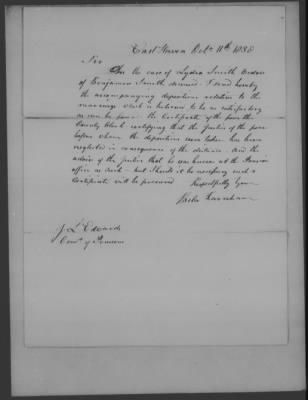 East Haven Octr 11th 1838
Sir
In the case of Lydia Smith Widow
of Benjamin Smith deceased I send hereby
the accompanying depositions relative to the
marriage which is believed to be as satisfactory
as can be the Certificate of the from the
County Clerk certifying that the Justice of the peace
before whom the depositions were taken has been
neglected in consequence of the distance and the
advice of the Justice that he was known at the Pension
office as such but should it be necessary such a
Certificate will be procured Respectfully Yours
J L Edwards
Comr of Pensions